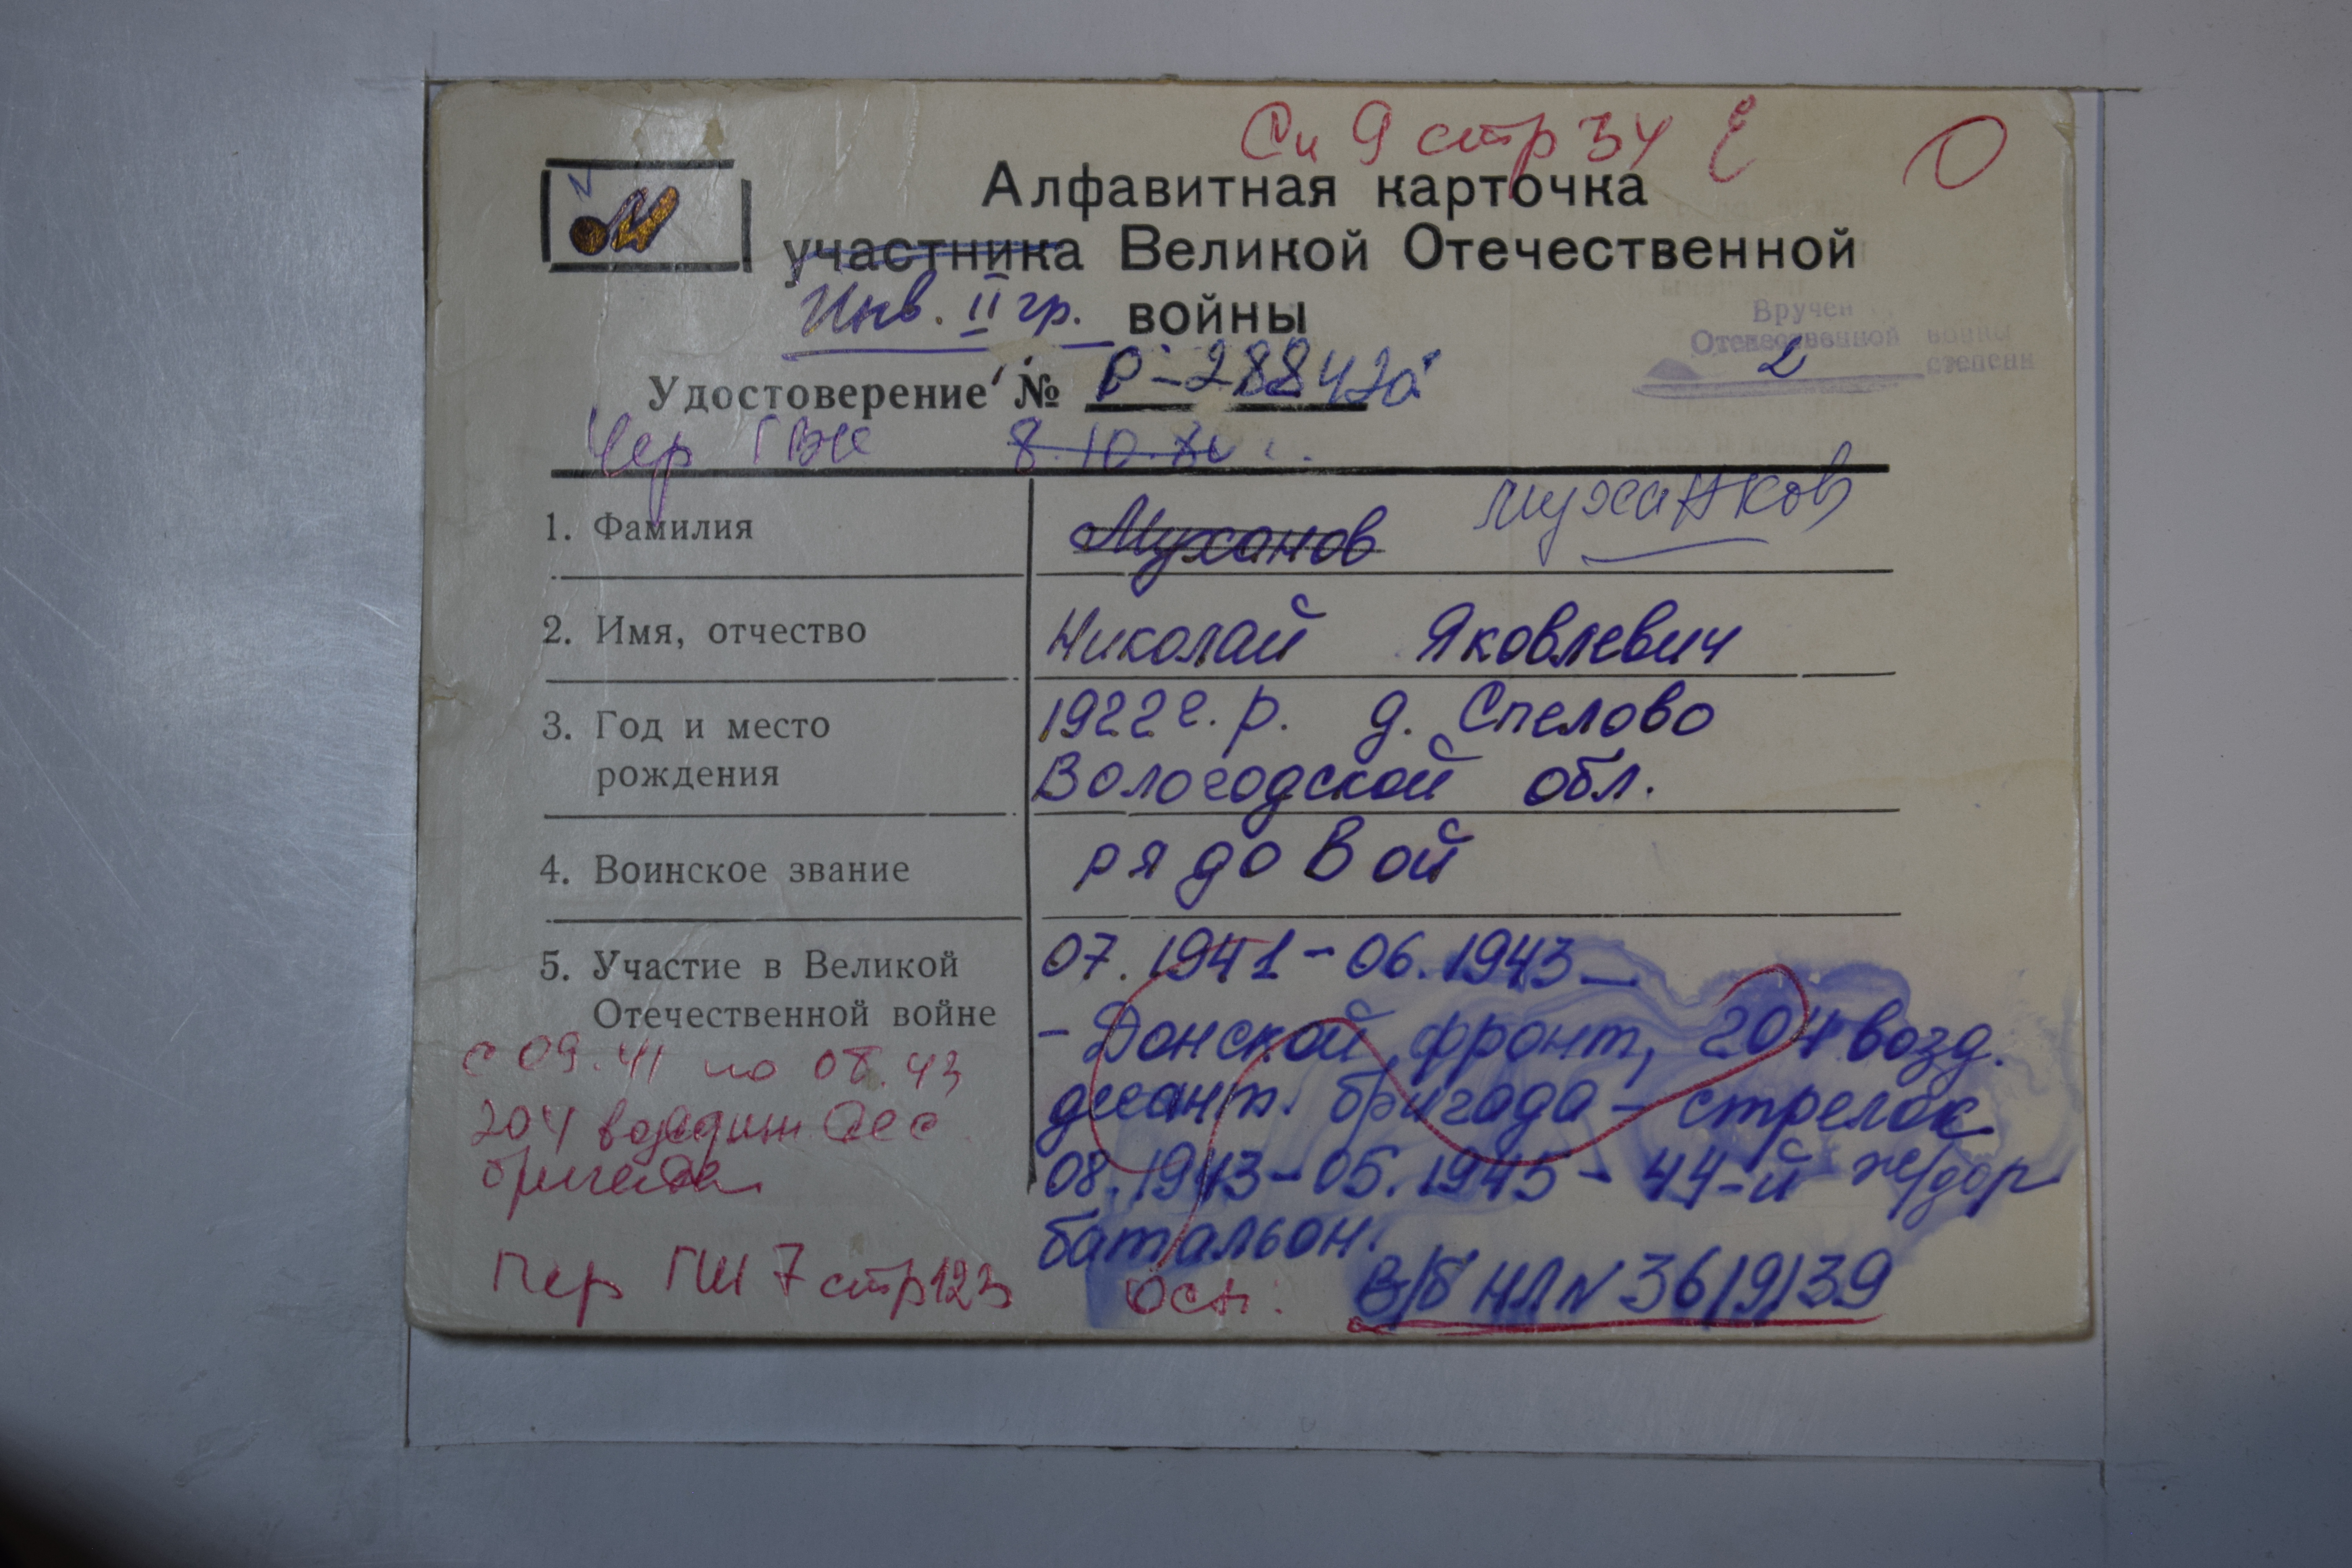 Сп 9 стр 34
Алфавитная карточка
М
участника Великой Отечественной
Инв. II гр. войны
Вручен
Отечественной войны
2 степени
Удостоверение № Р-288420
Чер ГВК 8.10.80 г.
1. Фамилия Муханов Муханков
2. Имя, отчество Николай Яковлевич
3. Год и место 1922 г. р. д. Спелово
рождения Вологодской обл.
4. Воинское звание рядовой
5. Участие в Великой 07.1941-06.1943-
Отечественной войне - Донской фронт, 204 возд.
десант. бригада - стрелок
08.1943-05.1945 - 44-й ж/дор
батальон.
с 09.41 по 08.43
204 воздушн дес
бригада
Пер ГШ 7 стр 123 Осн: В/б НЛ № 36/9/39